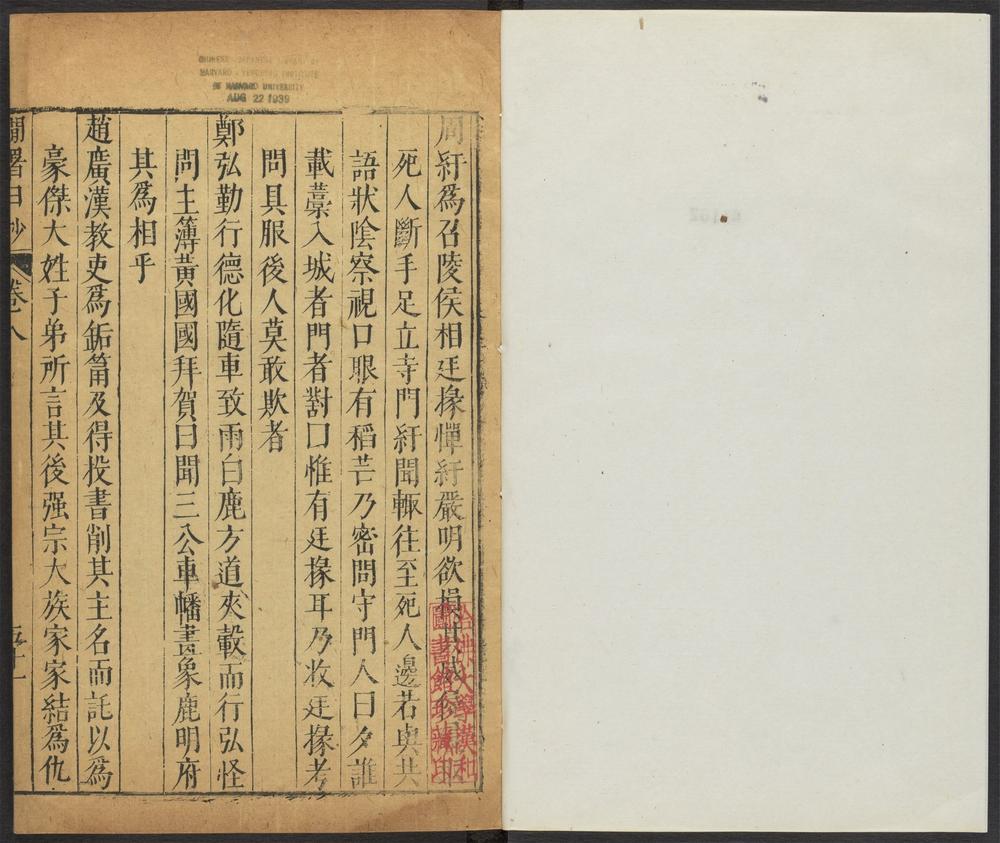 周紆爲召陵侯相廷掾憚紆嚴明欲損其威
死人斷手足立寺門紆聞輙往至死人邊若與共
語狀陰察視口眼有稻芒乃密問守門人曰夕誰
載藁入城者門者對曰惟有廷掾耳乃收廷掾考
問具服後人莫敢欺者
鄭弘勤行德化隨車致雨白鹿方道夾轂而行弘怪
問主簿黃國國拜賀曰聞三公車幡畫象鹿明府
其爲相乎
趙廣漢教吏爲缿筩及得投書削其主名而託以爲
豪傑大姓子弟所言其後强宗大族家家結爲仇
日抄 卷八
CHINESE - JAPANESE LIBRARY OF
HARVARD - YENCHING INSTITUTE
AT HARVARD UNIVERSITY
AUG 22 1939
哈佛大學漢和
圖書館珍藏印